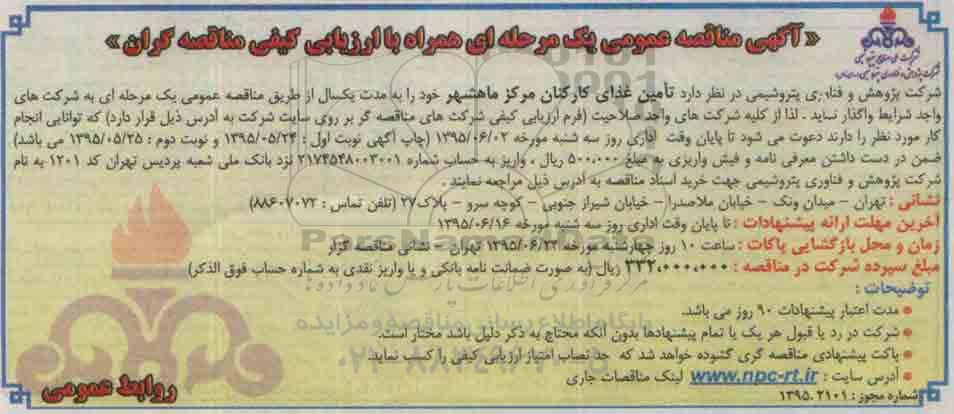 « آگهی مناقصه عمومی یک مرحله ای همراه با ارزیابی کیفی مناقصه گران »
شرکت ملی صنایع پتروشیمی
شرکت پژوهش و فناوری پتروشیمی
شرکت پژوهش و فناوری پتروشیمی در نظر دارد تأمین غذای کارکنان مرکز ماهشهر خود را به مدت یکسال از طریق مناقصه عمومی یک مرحله ای به شرکت های
واجد شرایط واگذار نماید . لذا از کلیه شرکت های واجد صلاحیت (فرم ارزیابی کیفی شرکت های مناقصه گر بر روی سایت شرکت به آدرس ذیل قرار دارد) که توانایی انجام
کار مورد نظر را دارند دعوت می شود تا پایان وقت اداری روز سه شنبه مورخه ۱۳۹۵/۰۶/۰۲ (چاپ آگهی نوبت اول : ۱۳۹۵/۰۵/۲۴ و نوبت دوم : ۱۳۹۵/۰۵/۲۵ می باشد)
ضمن در دست داشتن معرفی نامه و فیش واریزی به مبلغ ۵۰۰،۰۰۰ ریال ، واریز به حساب شماره ۲۱۷۴۵۴۸۰۰۳۰۰۱ نزد بانک ملی شعبه پردیس تهران کد ۱۲۰۱ به نام
شرکت پژوهش و فناوری پتروشیمی جهت خرید اسناد مناقصه به آدرس ذیل مراجعه نمایند .
نشانی : تهران – میدان ونک – خیابان ملاصدرا – خیابان شیراز جنوبی – کوچه سرو – پلاک۲۷ (تلفن تماس : ۸۸۶۰۷۰۷۲)
آخرین مهلت ارائه پیشنهادات : تا پایان وقت اداری روز سه شنبه مورخه ۱۳۹۵/۰۶/۱۶
زمان و محل بازگشایی پاکات : ساعت ۱۰ روز چهارشنبه مورخه ۱۳۹۵/۰۶/۲۴ تهران – نشانی مناقصه گزار
مبلغ سپرده شرکت در مناقصه : ۳۳۲،۰۰۰،۰۰۰ ریال (به صورت ضمانت نامه بانکی و یا واریز نقدی به شماره حساب فوق الذکر)
توضیحات :
● مدت اعتبار پیشنهادات ۹۰ روز می باشد.
● شرکت در رد یا قبول هر یک یا تمام پیشنهادها بدون آنکه محتاج به ذکر دلیل باشد مختار است.
● پاکت پیشنهادی مناقصه گری گشوده خواهد شد که حد نصاب امتیاز ارزیابی کیفی را کسب نماید.
● آدرس سایت : www.npc-rt.ir لینک مناقصات جاری
شماره مجوز : ۱۳۹۵.۲۱۰۱
روابط عمومی
پایگاه اطلاع رسانی مناقصه و مزایده